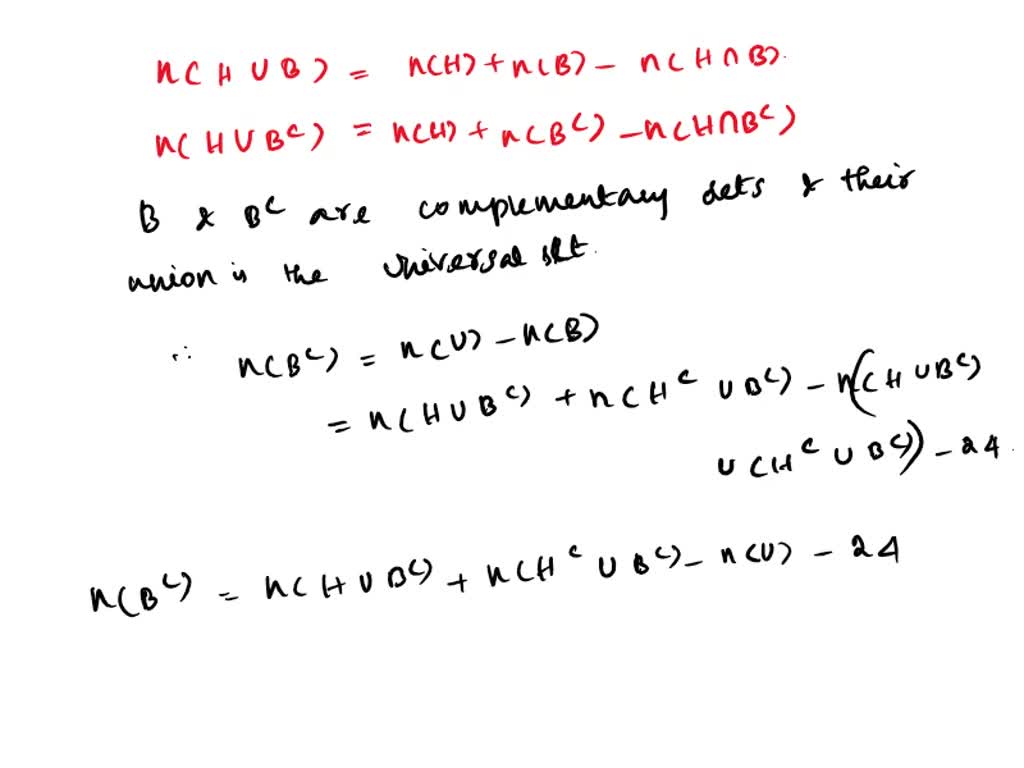 n(H∪B) = n(H)+n(B)- n(H∩B).
n(H∪Bᶜ) = n(H)+n(Bᶜ)-n(H∩Bᶜ)
B & Bᶜ are complementary sets & their
union is the universal set.
∴ n(Bᶜ) = n(U)-n(B)
= n(H∪Bᶜ)+n(Hᶜ∪Bᶜ)-n((H∪Bᶜ)
∪(Hᶜ∪Bᶜ))-24.
n(Bᶜ) = n(H∪Bᶜ)+n(Hᶜ∪Bᶜ)-n(U)-24